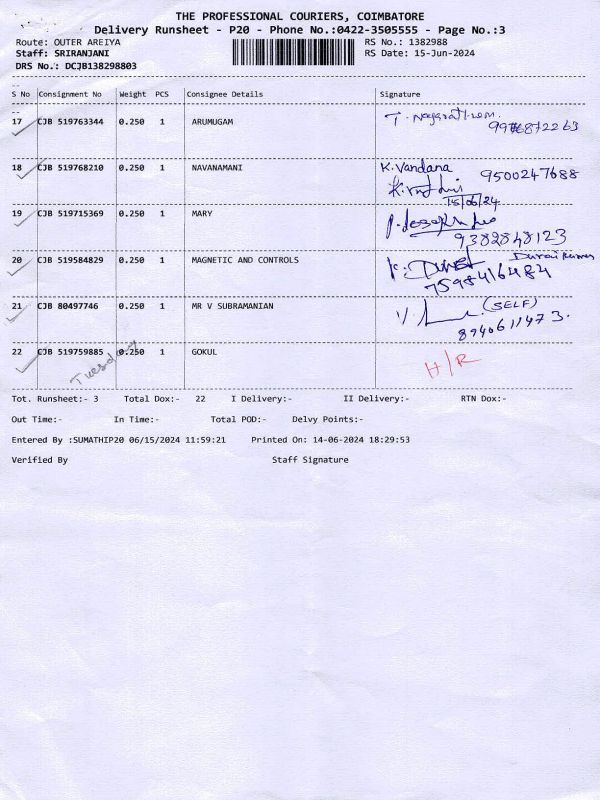 THE PROFESSIONAL COURIERS, COIMBATORE
Delivery Runsheet - P20 - Phone No.:0422-3505555 - Page No.:3
Route: OUTER AREIYA RS No.: 1382988
Staff: SRIRANJANI RS Date: 15-Jun-2024
DRS No.: DCJB138298803
S No Consignment No Weight PCS Consignee Details Signature
17 CJB 519763344 0.250 1 ARUMUGAM
18 CJB 519768210 0.250 1 NAVANAMANI K. Vandana
9500247688
15/06/24
19 CJB 519715369 0.250 1 MARY
9382848123
20 CJB 519584829 0.250 1 MAGNETIC AND CONTROLS
7598416484
21 CJB 80497746 0.250 1 MR V SUBRAMANIAN (SELF)
8940611473.
22 CJB 519759885 0.250 1 GOKUL H/R
Tuesday
Tot. Runsheet:- 3 Total Dox:- 22 I Delivery:- II Delivery:- RTN Dox:-
Out Time:- In Time:- Total POD:- Delvy Points:-
Entered By :SUMATHIP20 06/15/2024 11:59:21 Printed On: 14-06-2024 18:29:53
Verified By Staff Signature